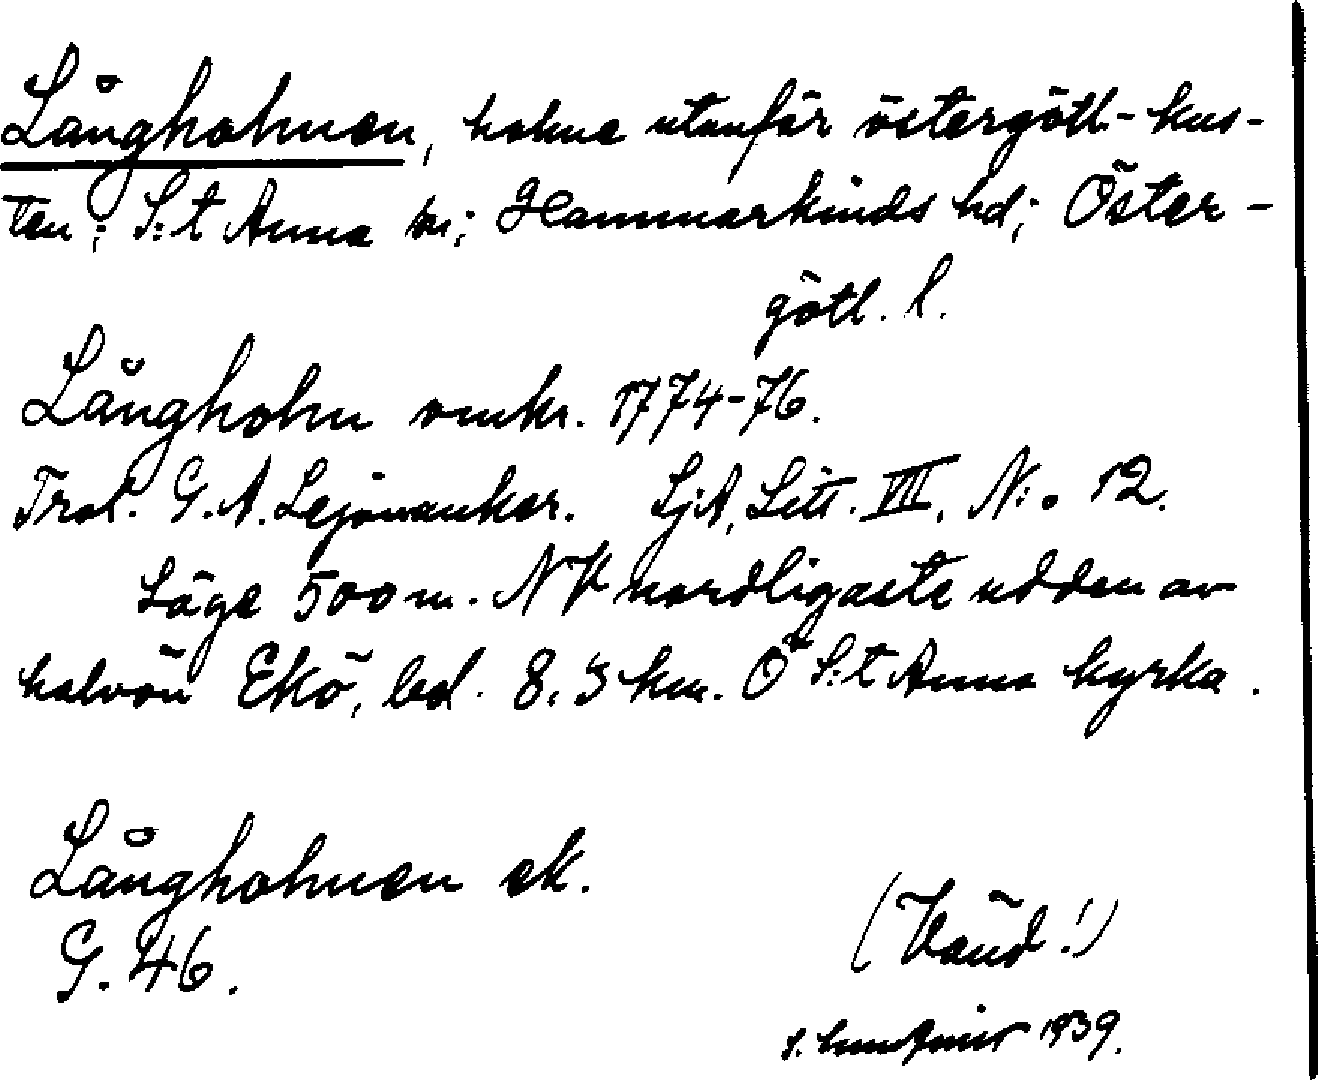 Långholmen, holme utanför östergötl.-kus-
ten; S:t Anna sn; Hammarkinds hd; Öster-
götl. l.
Långholm omkr. 1774-76.
Trol. G. A. Lejonanker. SjA, Litt. VIII, N:o 12.
Läge 500 m. NV nordligaste udden av
halvön Ekö, bel. 8,5 km. Ö S:t Anna kyrka.
Långholmen ek.
G. 46.
(Vänd!)
S. 1939.